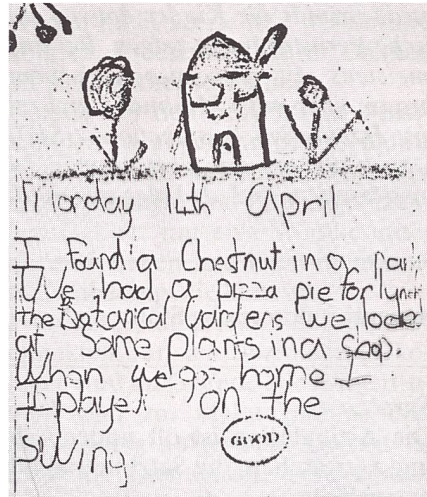 Monday 14th April
I found a Chestnut in a
We had a pizza pie for lunch
the Botanical Gardens we look
at some plants in a
When we got home I
I played on the
swing
GOOD